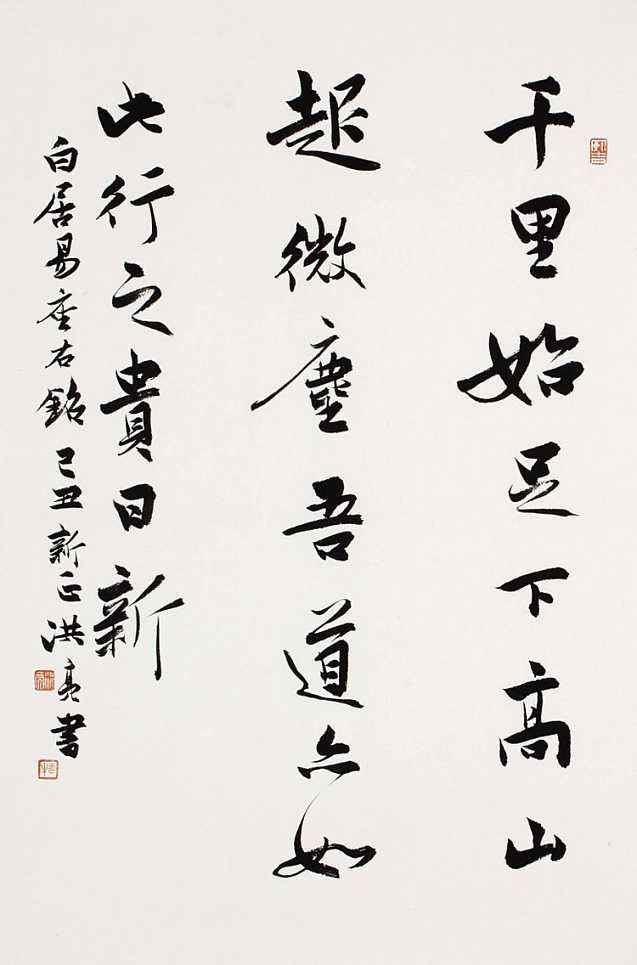 千里始足下高山
起微塵吾道亦如
此行之貴日新
白居易座右銘己丑新正洪亮書